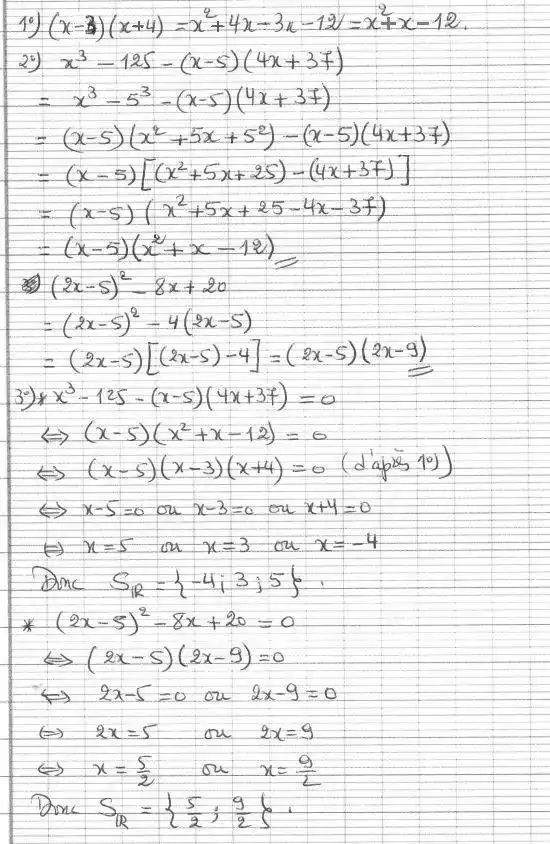 1°) (x-3)(x+4) = x²+4x-3x-12 = x²+x-12.
2°) x³ - 125 - (x-5)(4x+37)
= x³ - 5³ - (x-5)(4x+37)
= (x-5)(x²+5x+5²) - (x-5)(4x+37)
= (x-5)[(x²+5x+25) - (4x+37)]
= (x-5)(x²+5x+25-4x-37)
= (x-5)(x²+x-12)
(2x-5)² - 8x + 20
= (2x-5)² - 4(2x-5)
= (2x-5)[(2x-5)-4] = (2x-5)(2x-9)
3°) * x³-125-(x-5)(4x+37) = 0
⇔ (x-5)(x²+x-12) = 0
⇔ (x-5)(x-3)(x+4) = 0 (d'après 1°)
⇔ x-5=0 ou x-3=0 ou x+4=0
⇔ x=5 ou x=3 ou x=-4
Donc S_IR = {-4; 3; 5}.
* (2x-5)² - 8x + 20 = 0
⇔ (2x-5)(2x-9) = 0
⇔ 2x-5=0 ou 2x-9=0
⇔ 2x=5 ou 2x=9
⇔ x=5/2 ou x=9/2
Donc S_IR = {5/2; 9/2}.